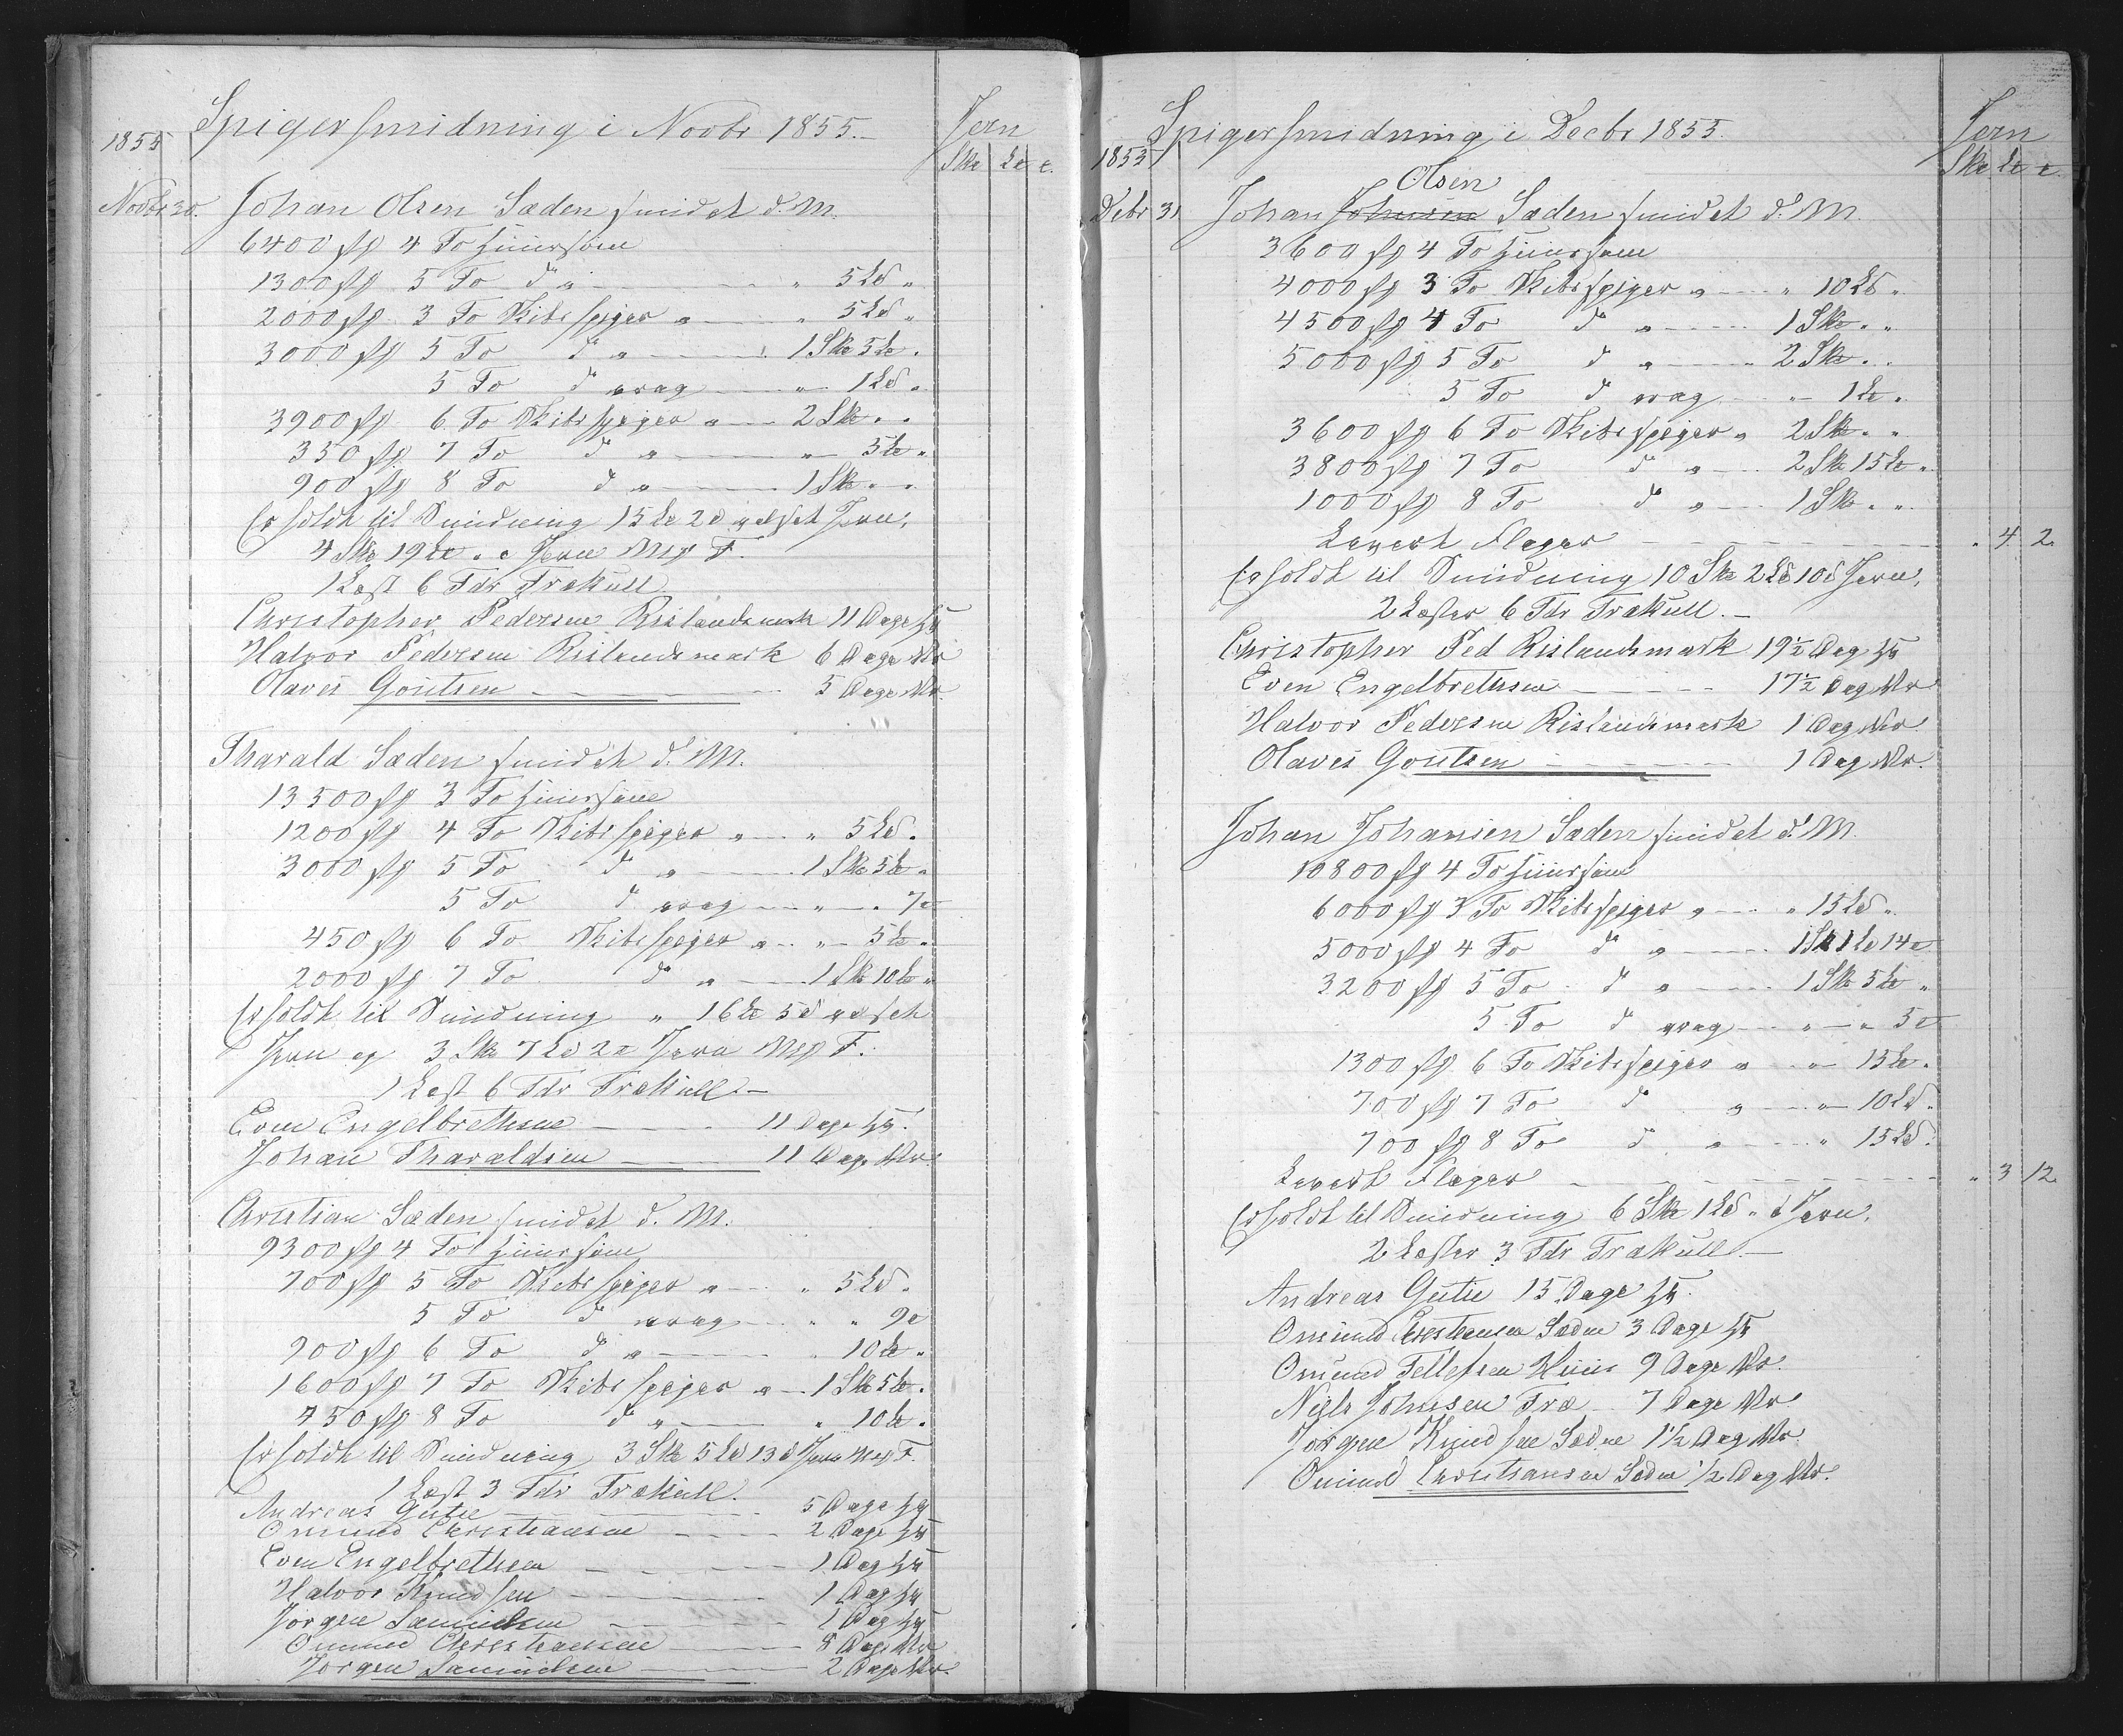 Spigersmidning i Novbr 1855.
Jern
1855
Sk℔ L℔ ℔.
Novbr 30. Johan Olsen Saden smidet d. M.
6400 stk 4 To Huussøm
1300 stk 5 To do " " 5 L℔ "
2000 stk 3 To Skibsspiger " " 5 L℔ "
3000 stk 5 To do " 1 Sk℔ 5 L℔ "
5 To do vrag " 1 L℔ "
3900 stk 6 To Skibsspiger " 2 Sk℔ " "
350 stk 7 To do " " 5 L℔ "
900 stk 8 To do " 1 Sk℔ " "
Erholdt til Smidning 15 L℔ 2 ℔ valset Jern,
4 Sk℔ 19 L℔ " ℔ Jern Mrk F.
1 Læst 6 Tdr Trækull
Christopher Pedersen Rislandsmark 11 Dage
Halvor Pedersen Rislandsmark 6 Dage
Olaves Goutsen 5 Dage
Tharald Saden smidet d. M.
13500 stk 3 To Huussøm
1200 stk 4 To Skibsspiger " " 5 L℔ "
3000 stk 5 To do " 1 Sk℔ 5 L℔ "
5 To do vrag " " 7 ℔
450 stk 6 To Skibsspiger " " 5 L℔ "
2000 stk 7 To do " 1 Sk℔ 10 L℔ "
Erholdt til Smidning " 16 L℔ 5 ℔ valset
Jern og 3 Sk℔ 7 L℔ 2 ℔ Jern Mrk F.
1 Læst 6 Tdr Trækull
Even Engelbrethsen 11 Dage
Johan Tharaldsen 11 Dage
Christian Saden smidet d. M.
9300 stk 4 To Huussøm
700 stk 5 To Skibsspiger " " 5 L℔ "
5 To do vrag " " 9 ℔
900 stk 6 To do " " 10 L℔ "
1600 stk 7 To Skibsspiger " 1 Sk℔ 5 L℔ "
450 stk 8 To do " " 10 L℔ "
Erholdt til Smidning 3 Sk℔ 5 L℔ 13 ℔ Jern Mrk F.
1 Læst 3 Tdr Trækull.
Andreas Gutu 5 Dage
Omund Christiansen 2 Dage
Even Engelbrethsen 1 Dag
Halvor Knudsen 1 Dag
Jørgen Samuelsen 1 Dag
Omund Christiansen 8 Dage
Jørgen Samuelsen 2 Dage
Spigersmidning i Decbr 1855.
Jern
1855
Sk℔ L℔ ℔
Olsen
Debr 31 Johan Johnsen Saden smidet d. M.
3600 stk 4 To Huussøm
4000 stk 3 To Skibsspiger " " 10 L℔ "
4500 stk 4 To do " 1 Sk℔ " "
5000 stk 5 To do " 2 Sk℔ " "
5 To do vrag " 1 L℔ "
3600 stk 6 To Skibsspiger " 2 Sk℔ " "
3800 stk 7 To do " 2 Sk℔ 15 L℔ "
1000 stk 8 To do " 1 Sk℔ " "
Levert Flager " 4 2
Erholdt til Smidning 10 Sk℔ 2 L℔ 10 ℔ Jern,
2 Læster 6 Tdr Trækull.
Christopher Ped Rislandsmark 19½ Dag
Even Engelbrethsen 17½ Dag
Halvor Pedersen Rislandsmark 1 Dag
Olaves Goutsen 1 Dag
Johan Johansen Saden smidet d. M.
10800 stk 4 To Huussøm
6000 stk 3 To Skibsspiger " " 15 L℔ "
5000 stk 4 To do " 1 Sk℔ 1 L℔ 14 ℔
3200 stk 5 To do " 1 Sk℔ 5 L℔ "
5 To do vrag " " 5 ℔
1300 stk 6 To Skibsspiger " " 15 L℔ "
700 stk 7 To do " " 10 L℔ "
700 stk 8 To do " " 15 L℔ "
Levert Flager " 3 12
Erholdt til Smidning 6 Sk℔ 1 L℔ " ℔ Jern,
2 Læster 3 Tdr Trækull.
Andreas Gutu 15 Dage
Omund Christiansen Saden 3 Dage
Omund Tellefsen Huus 9 Dage
Niels Johnsen Træ 7 Dage
Jørgen Knudsen Saden 1½ Dag
Omund Christiansen Saden ½ Dag